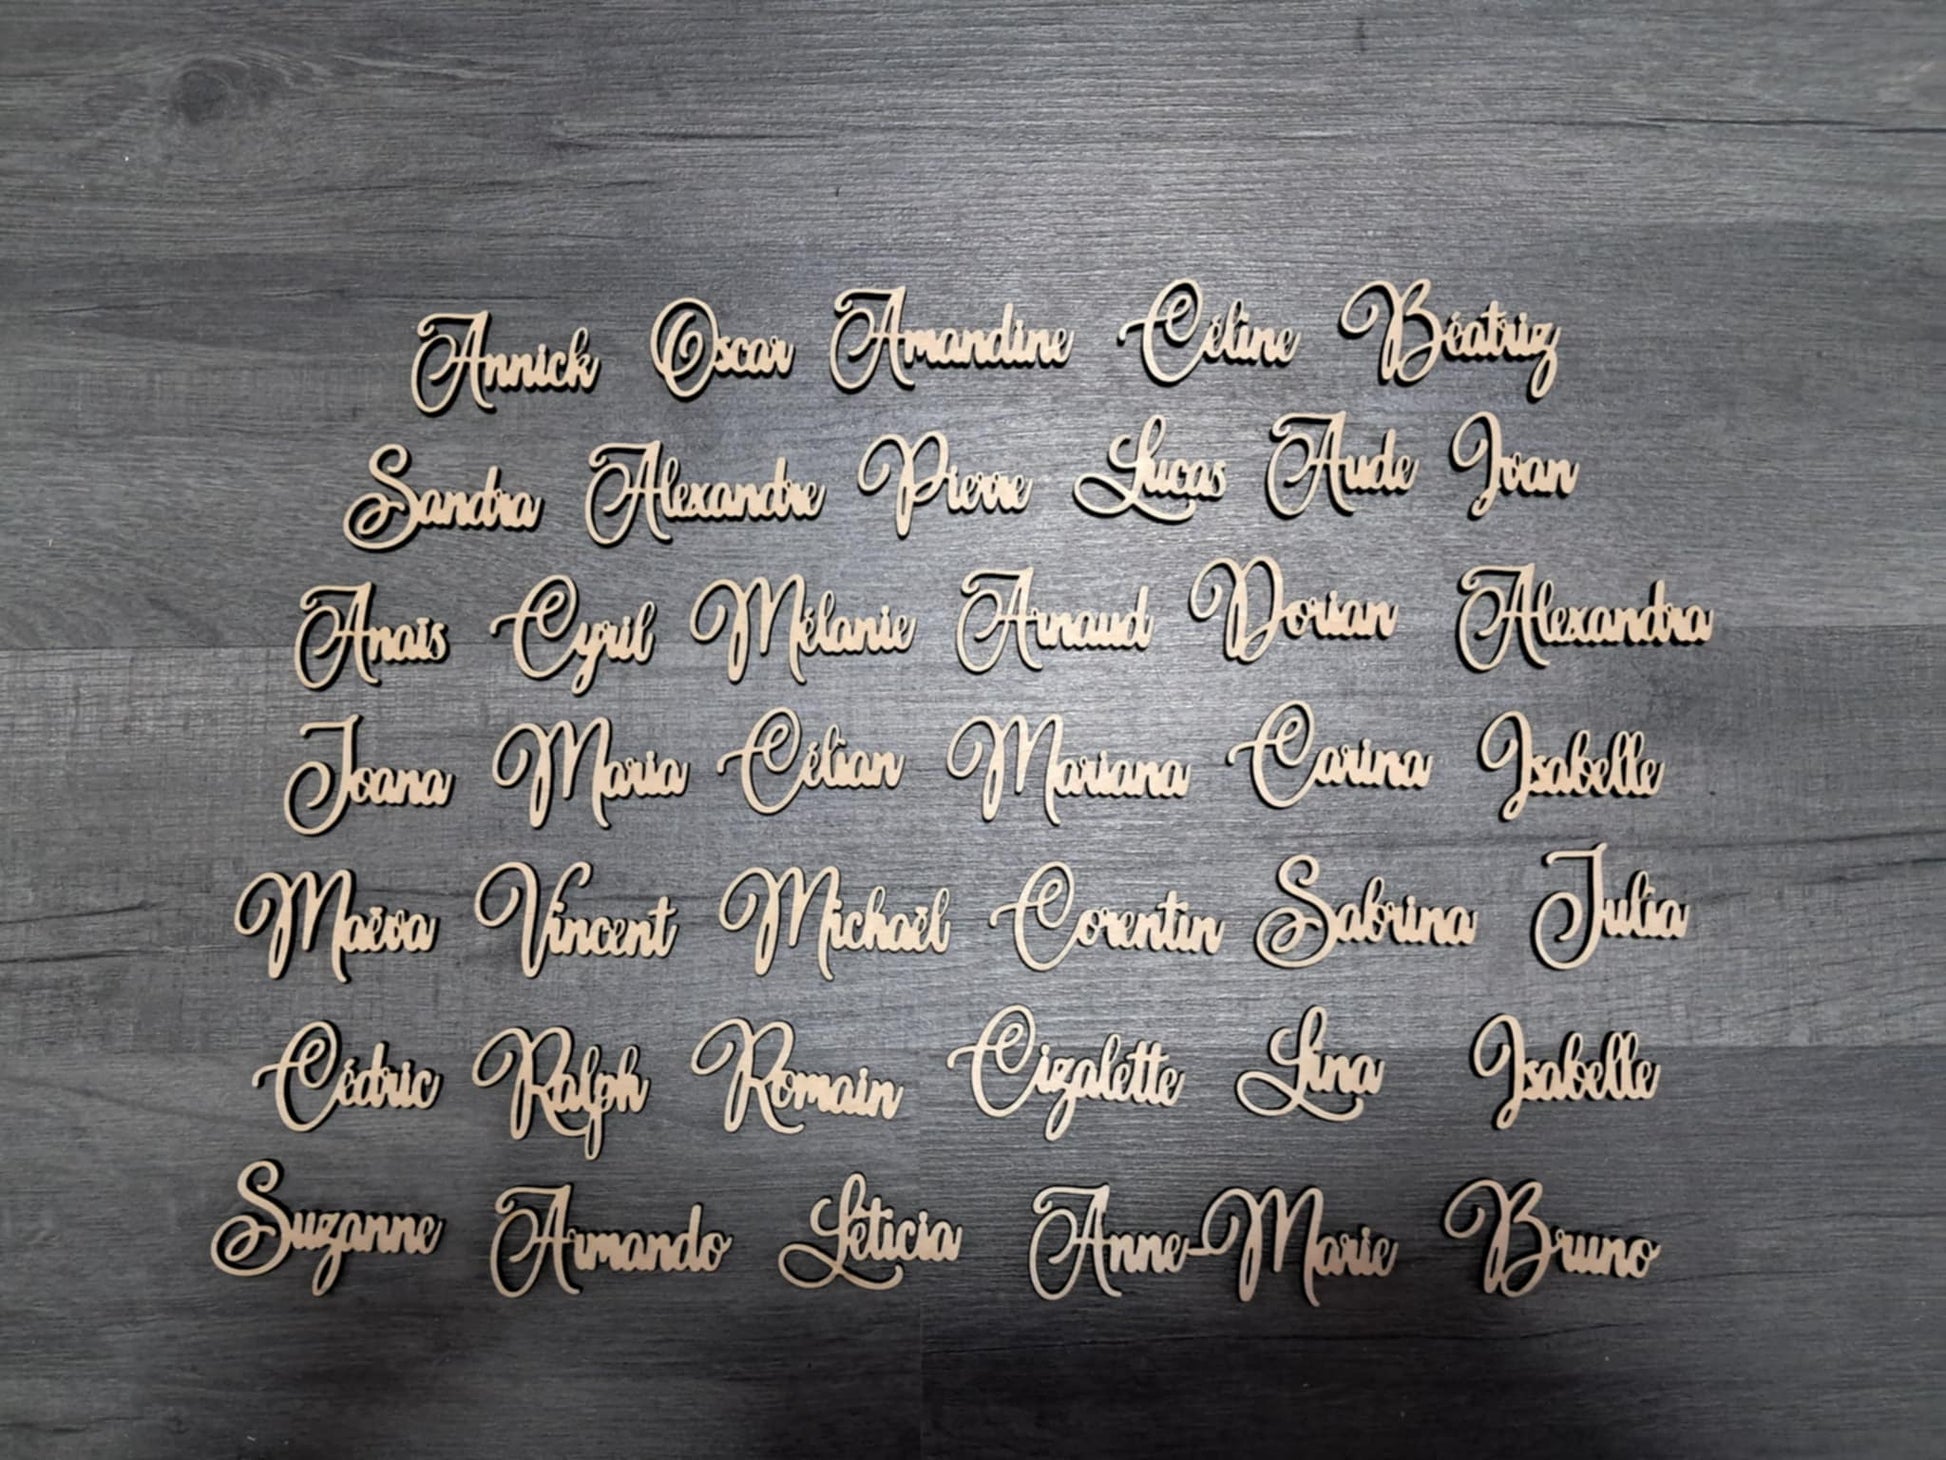 Annick Oscar Amandine Céline Béatriz
Sandra Alexandre Pierre Lucas Aude Ivan
Anaïs Cyril Mélanie Arnaud Dorian Alexandra
Joana Maria Célian Mariana Carina Isabelle
Maëva Vincent Michaël Corentin Sabrina Julia
Cédric Ralph Romain Cizalette Lina Isabelle
Suzanne Armando Léticia Anne-Marie Bruno